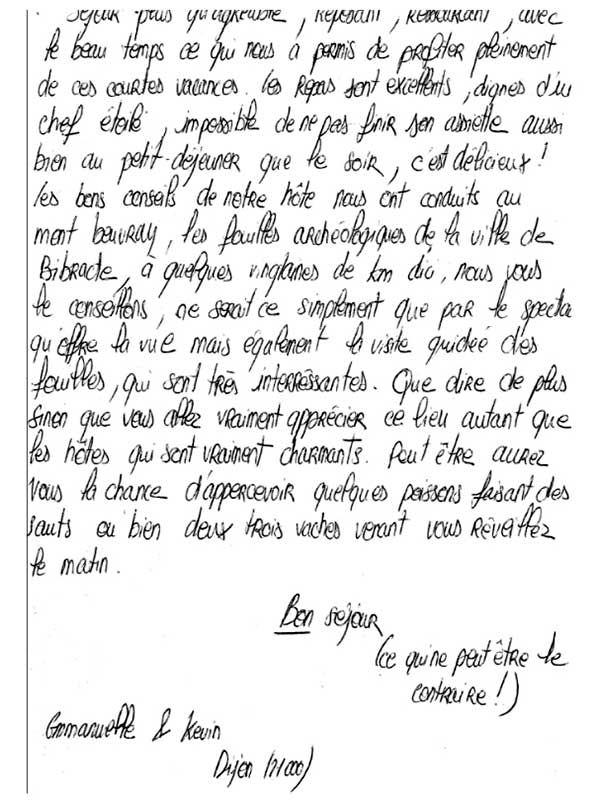 séjour plus qu'agréable, reposant, ressourçant, avec
le beau temps ce qui nous a permis de profiter pleinement
de ces courtes vacances. Les repas sont excellents, dignes d'u
chef étoilé, impossible de ne pas finir son assiette aussi
bien au petit-déjeuner que le soir, c'est délicieux!
Les bons conseils de notre hôte nous ont conduits au
mont beuvray, les fouilles archéologiques de la ville de
Bibracte, à quelques vingtaines de km d'ici, nous vous
le conseillons, ne serait ce simplement que par le specta
qu'offre la vue mais également la visite guidée des
fouilles, qui sont très interressantes. Que dire de plus
sinon que vous allez vraiment apprécier ce lieu autant que
les hôtes qui sont vraiment charmants. Peut être aurez
vous la chance d'appercevoir quelques poissons faisant des
sauts ou bien deux trois vaches venant vous réveillez
le matin.
Bon séjour
(ce qui ne peut être le
contraire!)
Emmanuelle & Kevin
Dijon (21000)